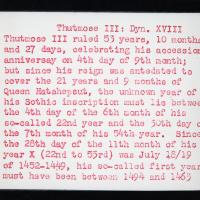 Thutmose III: Dyn. XVIII
Thutmose III ruled 53 years, 10 months
and 27 days, celebrating his accession
anniversay on 4th day of 9th month;
but since his reign was antedated to
cover the 21 years and 9 months of
Queen Hatshepsut, the unknown year of
his Sothic inscription must lie between
the 4th day of the 6th month of his
so-called 22nd year and the 30th day of
the 7th month of his 54th year. Since
the 28th day of the 11th month of his
year X (22nd to 53rd) was July 18/19
of 1452-1449, his so-called first year
must have been between 1494 and 1463